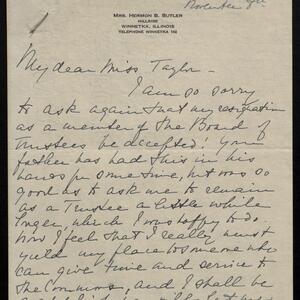 November 9th
MRS. HERMON B. BUTLER
HILLSIDE
WINNETKA, ILLINOIS
TELEPHONE WINNETKA 142
My dear Miss Taylor -
I am so sorry
to ask again that my resignation
as a member of the Board of
Trustees be accepted! Your
father has had this in his
hands for some time, but was so
good as to ask me to remain
as a Trustee a little while
longer, which I was happy to do
Now I feel that I really must
yield my place to someone who
can give time and service to
the Commons, and I shall be